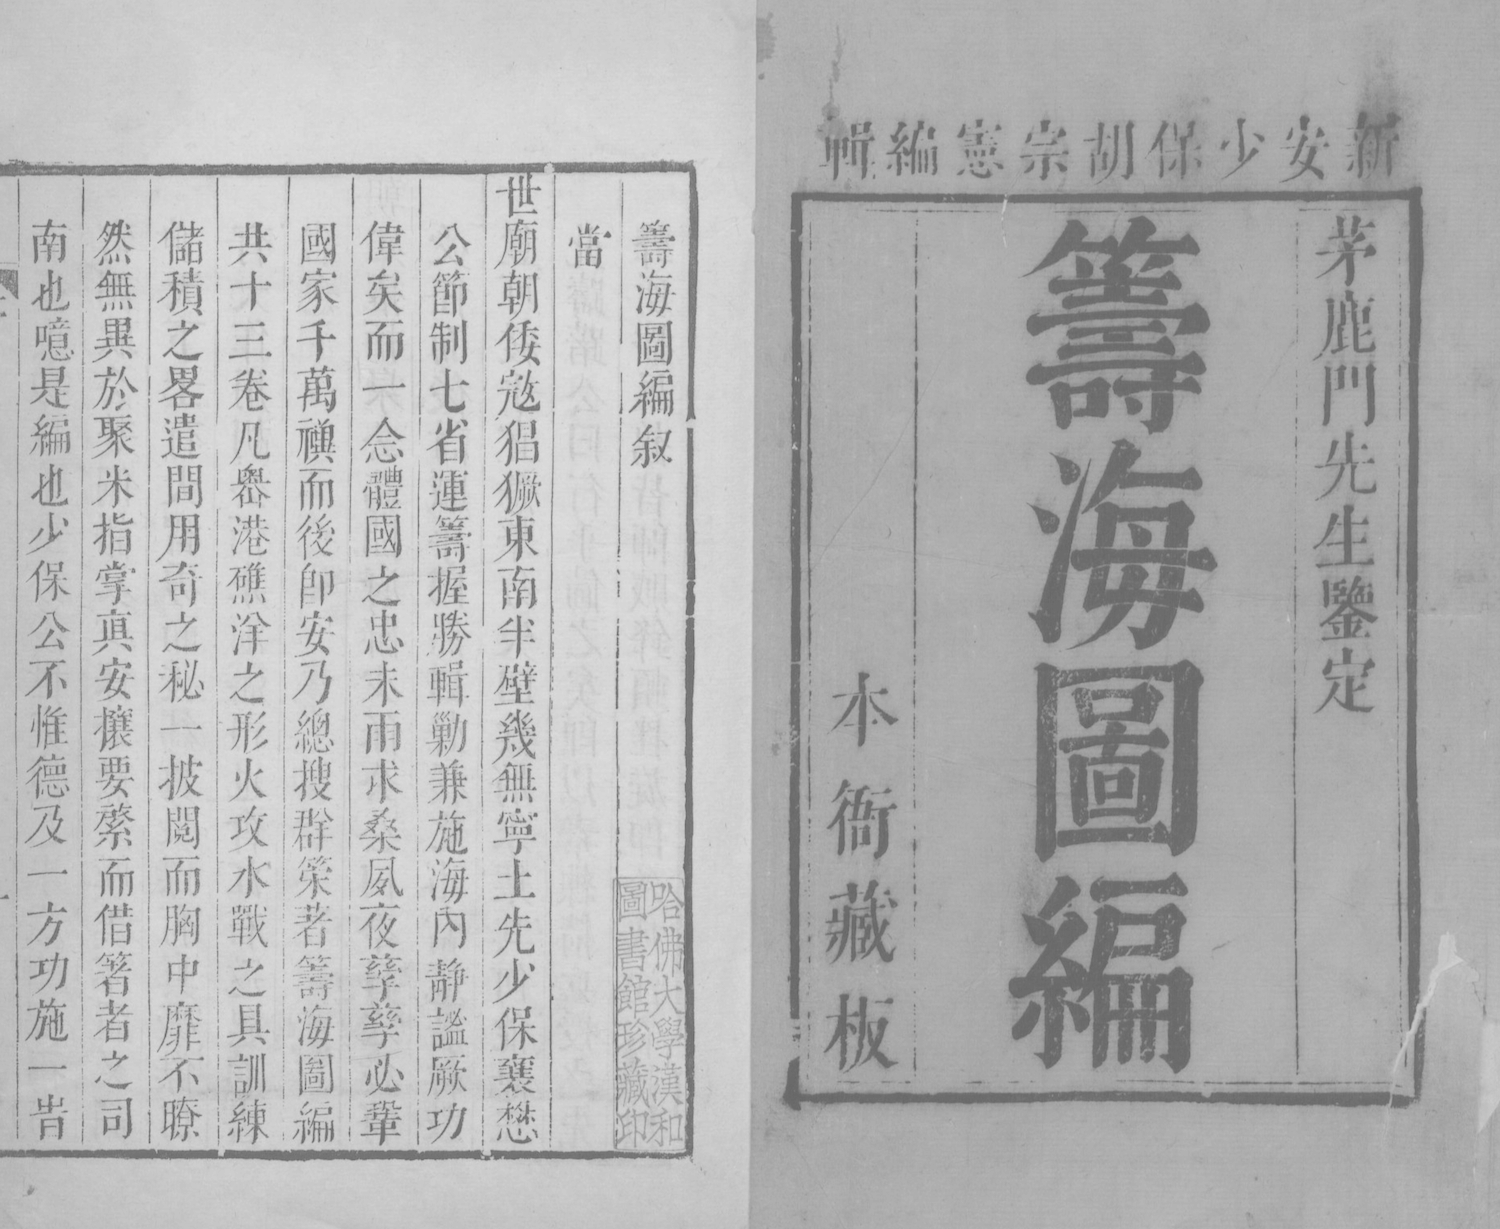 新安少保胡宗憲編輯
茅鹿門先生鑒定
籌海圖編
本衙藏板
籌海圖編敘
當
世廟朝倭寇猖獗東南半壁幾無寧土先少保襄懋
公節制七省運籌握勝輯勦兼施海內靜謐厥功
偉矣而一念體國之忠未雨求桑夙夜孳孳必鞏
國家千萬禩而後即安乃總搜群策著籌海圖編
共十三卷凡嶴港礁洋之形火攻水戰之具訓練
儲積之畧遣間用奇之秘一披閱而胸中靡不瞭
然無異於聚米指掌真安攘要綮而借箸者之司
南也噫是編也少保公不惟德及一方功施一旹
哈佛大學漢和
圖書館珍藏印